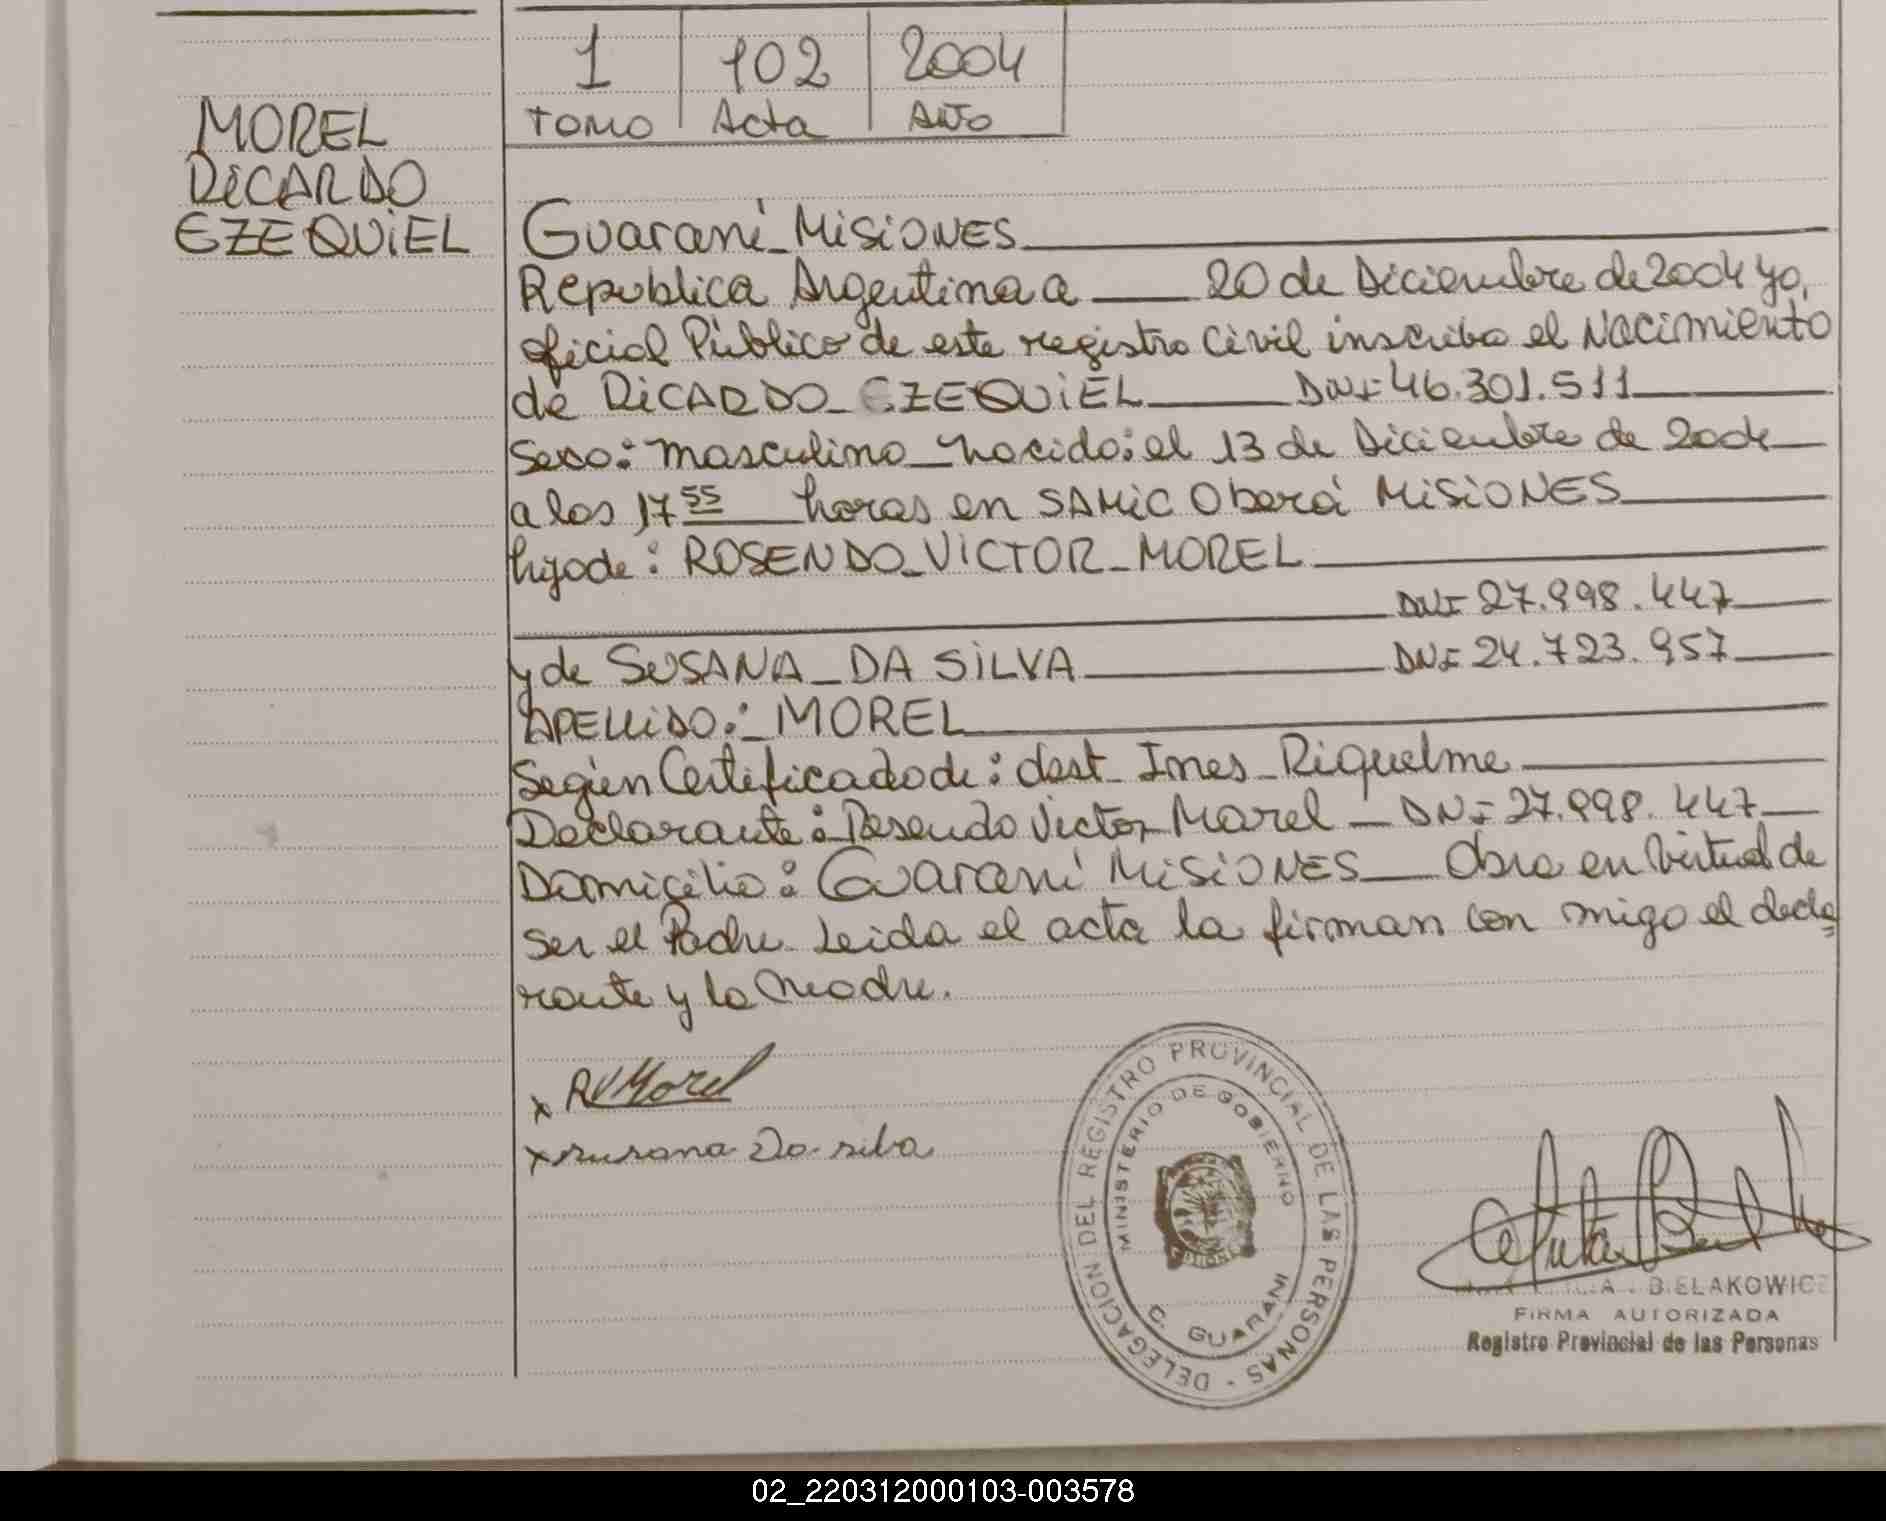 1 102 2004
TOMO Acta AÑO
MOREL
RICARDO
EZEQUIEL
Guaraní - MISIONES
Republica Argentina a 20 de Diciembre de 2004 yo,
oficial Público de este registro Civil inscribo el Nacimiento
de RICARDO - EZEQUIEL DNI 46.301.511
Sexo: masculino - nacido: el 13 de Diciembre de 2004
a las 17 55 horas en SAMIC Oberá MISIONES
hijo de: ROSENDO - VICTOR - MOREL
DNI 27.998.447
y de SUSANA - DA SILVA DNI 24.723.957
APELLIDO: - MOREL
Según Certificado de: obst - Ines - Riquelme
Declarante: Rosendo Victor Morel - DNI 27.998.447
Domicilio: Guaraní MISIONES Obra en Virtud de
ser el Padre Leida el acta la firman con migo el decla=
rante y la Madre.
x RVMorel
x susana Da silva
DELEGACION DEL REGISTRO PROVINCIAL DE LAS PERSONAS -
MINISTERIO DE GOBIERNO
C. GUARANI
BIELAKOWICZ
FIRMA AUTORIZADA
Registro Provincial de las Personas
02_220312000103-003578